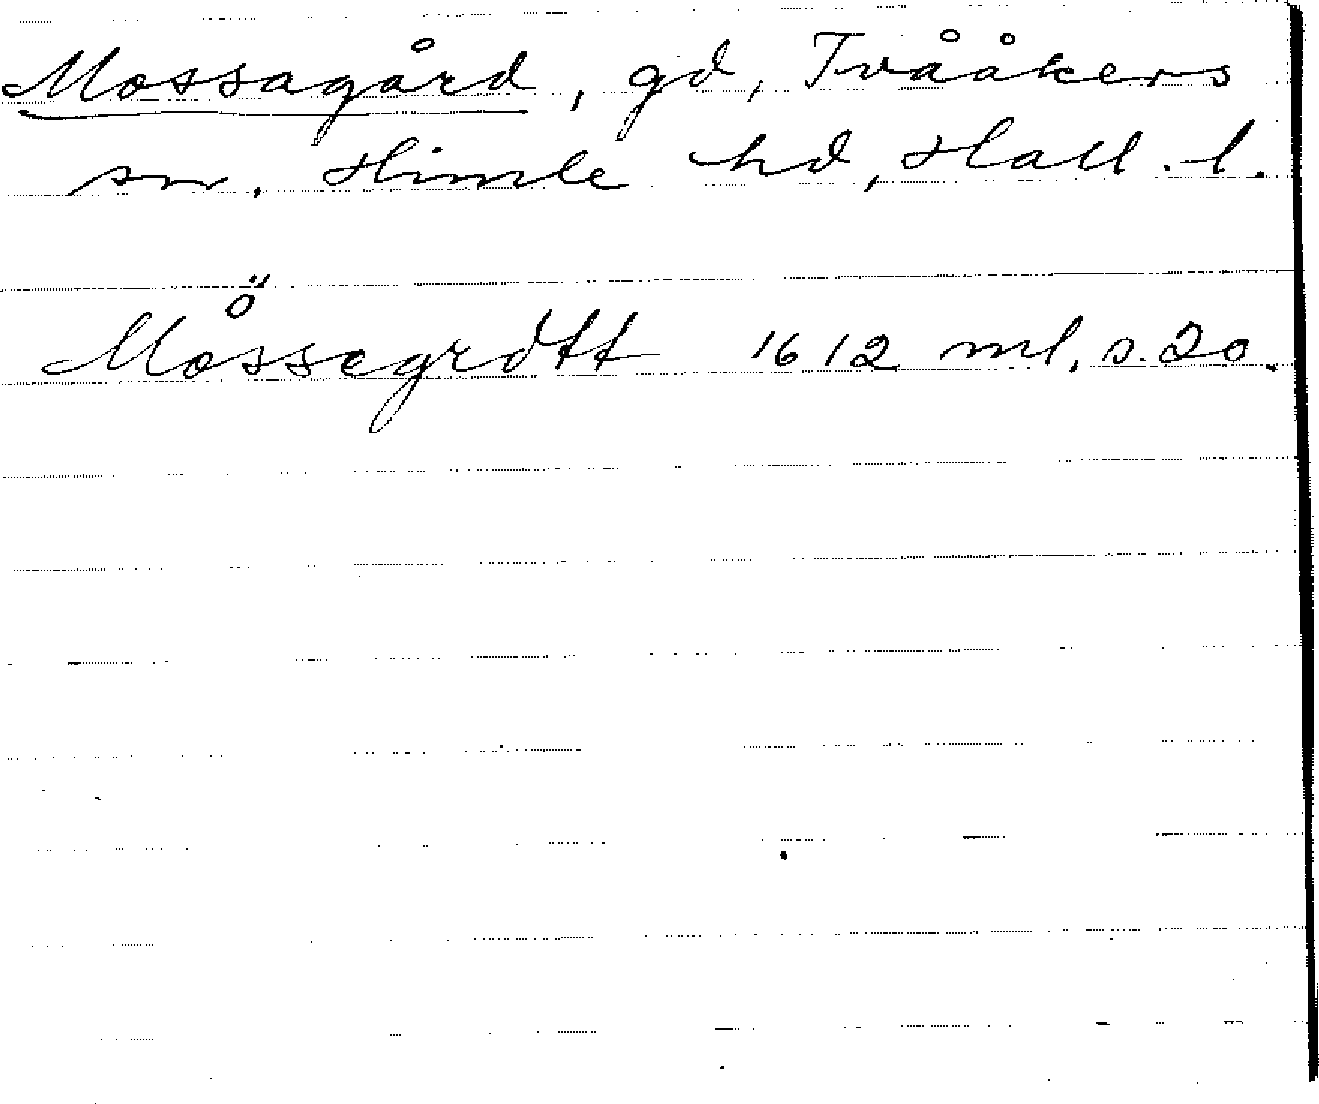 Mossagård, gd, Tvååkers
sn. Himle hd, Hall. l.
ö
Mossegrdtt 1612 ml. s. 20.